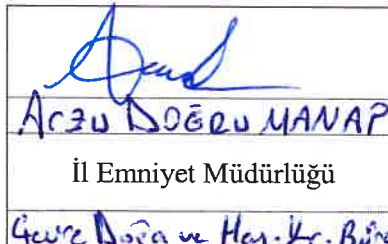 Arzu DOĞRU MANAP
İl Emniyet Müdürlüğü
Çevre Doğa ve Hay. Kr. Büro